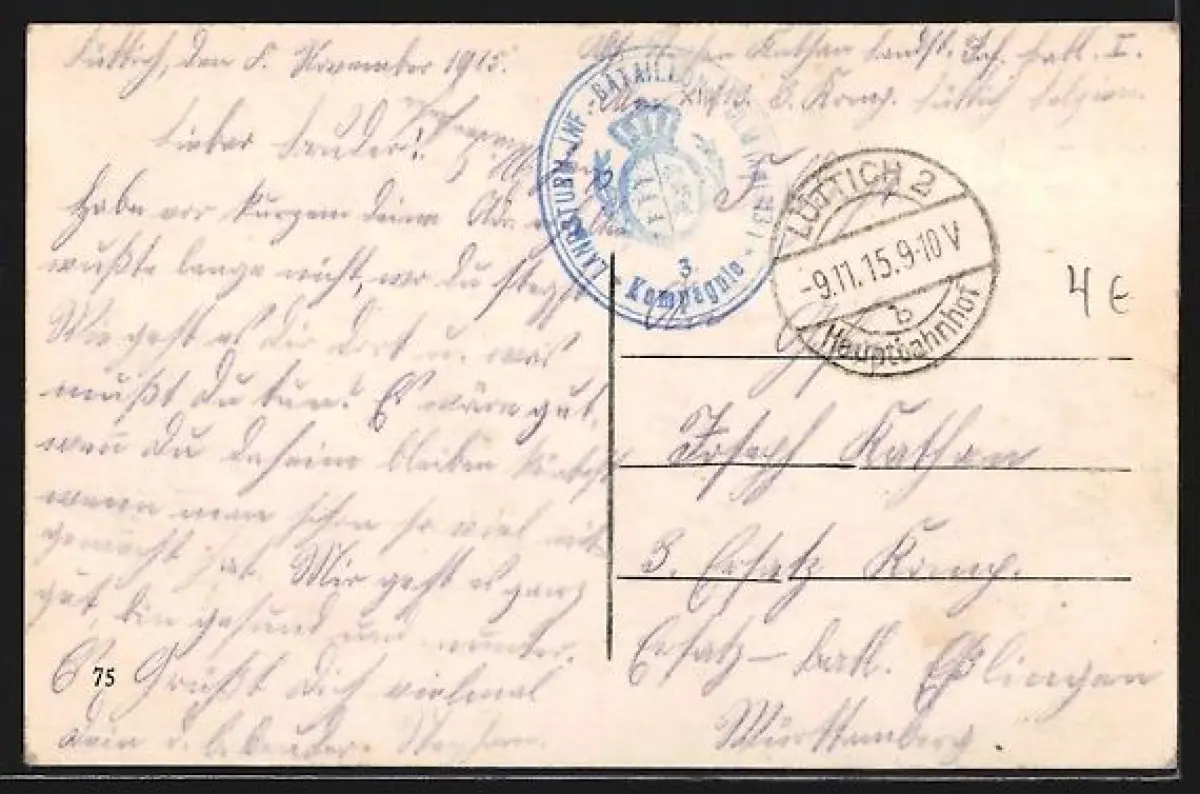 Lüttich, den 8. November 1915.
Abs. Stephan Kathan Landst. Inf. Batl. I.
3. Komp. Lüttich Belgien.
Lieber Bruder!
Habe vor kurzem deine Adr. erhalten
wußte lange nicht, wo du stehst
Wie geht es Dir dort u. was
mußt Du tun? Es wäre gut,
wen̄ Du daheim bleiben könntest
wenn man schon so viel mit
gemacht hat. Mir geht es ganz
gut, bin gesund und munter.
Es Grüßt Dich vielmal
dein d. l. Bruder Stephan.
75
LANDSTURM-INF.-BATAILLON
3. Kompagnie
LÜTTICH 2
-9.11.15.9-10 V
b
Hauptbahnhof
4 €
Joseph Kathan
3. Ersatz Komp.
Ersatz-Batl. Eßlingen
Württemberg